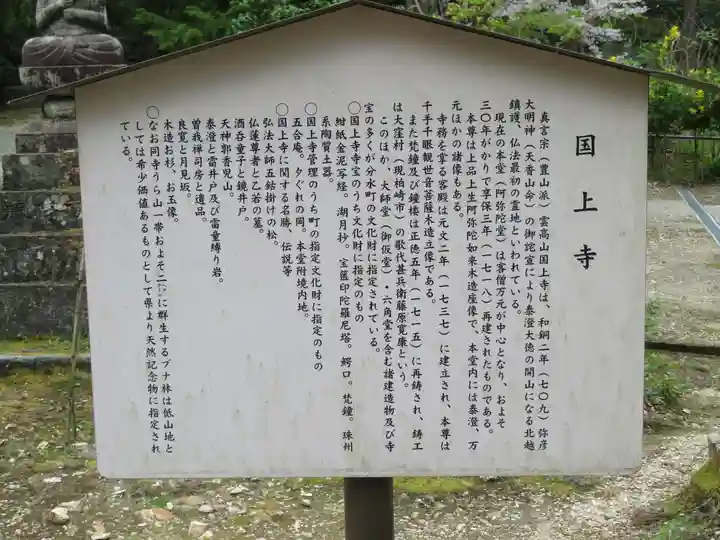 国上寺
真言宗（豊山派）雲高山国上寺は、和銅二年（七〇九）弥彦
大明神（天香山命）の御託宣により泰澄大徳の開山になる北越
鎮護、仏法最初の霊地といわれている。
現在の本堂（阿弥陀堂）は客僧万元が中心となり、およそ
三〇年がかりで享保三年（一七一八）再建されたものである。
本尊は上品上生阿弥陀如来木造座像で、本堂内には泰澄、万
元ほかの諸像もある。
寺務を掌る客殿は元文二年（一七三七）に建立され、本尊は
千手千眼観世音菩薩木造立像である。
また梵鐘及び鐘楼は正徳五年（一七一五）に再鋳され、鋳工
は大窪村（現柏崎市）の歌代甚兵衛藤原寛康という。
このほか、大師堂（御仮堂）・六角堂を含む諸建造物及び寺
宝の多くが分水町の文化財に指定されている。
〇国上寺寺宝のうち文化財に指定のもの
紺紙金泥写経。湖月抄。宝篋印陀羅尼塔。鰐口。梵鐘。珠州
系陶質土器。
〇国上寺管理のうち町の指定文化財に指定のもの
五合庵。夕ぐれの岡。本堂附境内地。
〇国上寺に関する名勝、伝説等
弘法大師五鈷掛けの松。
仏蓮尊者と乙若の墓。
酒呑童子と鏡井戸。
天神郭香児山。
泰澄と雷井戸及び雷童縛り岩。
曽我禅司房と遺品。
良寛と月見坂。
木造お杉、お玉像。
〇なお同寺うら山一帯およそ二㌶に群生するブナ林は低山地と
しては希少価値あるものとして県より天然記念物に指定され
ている。